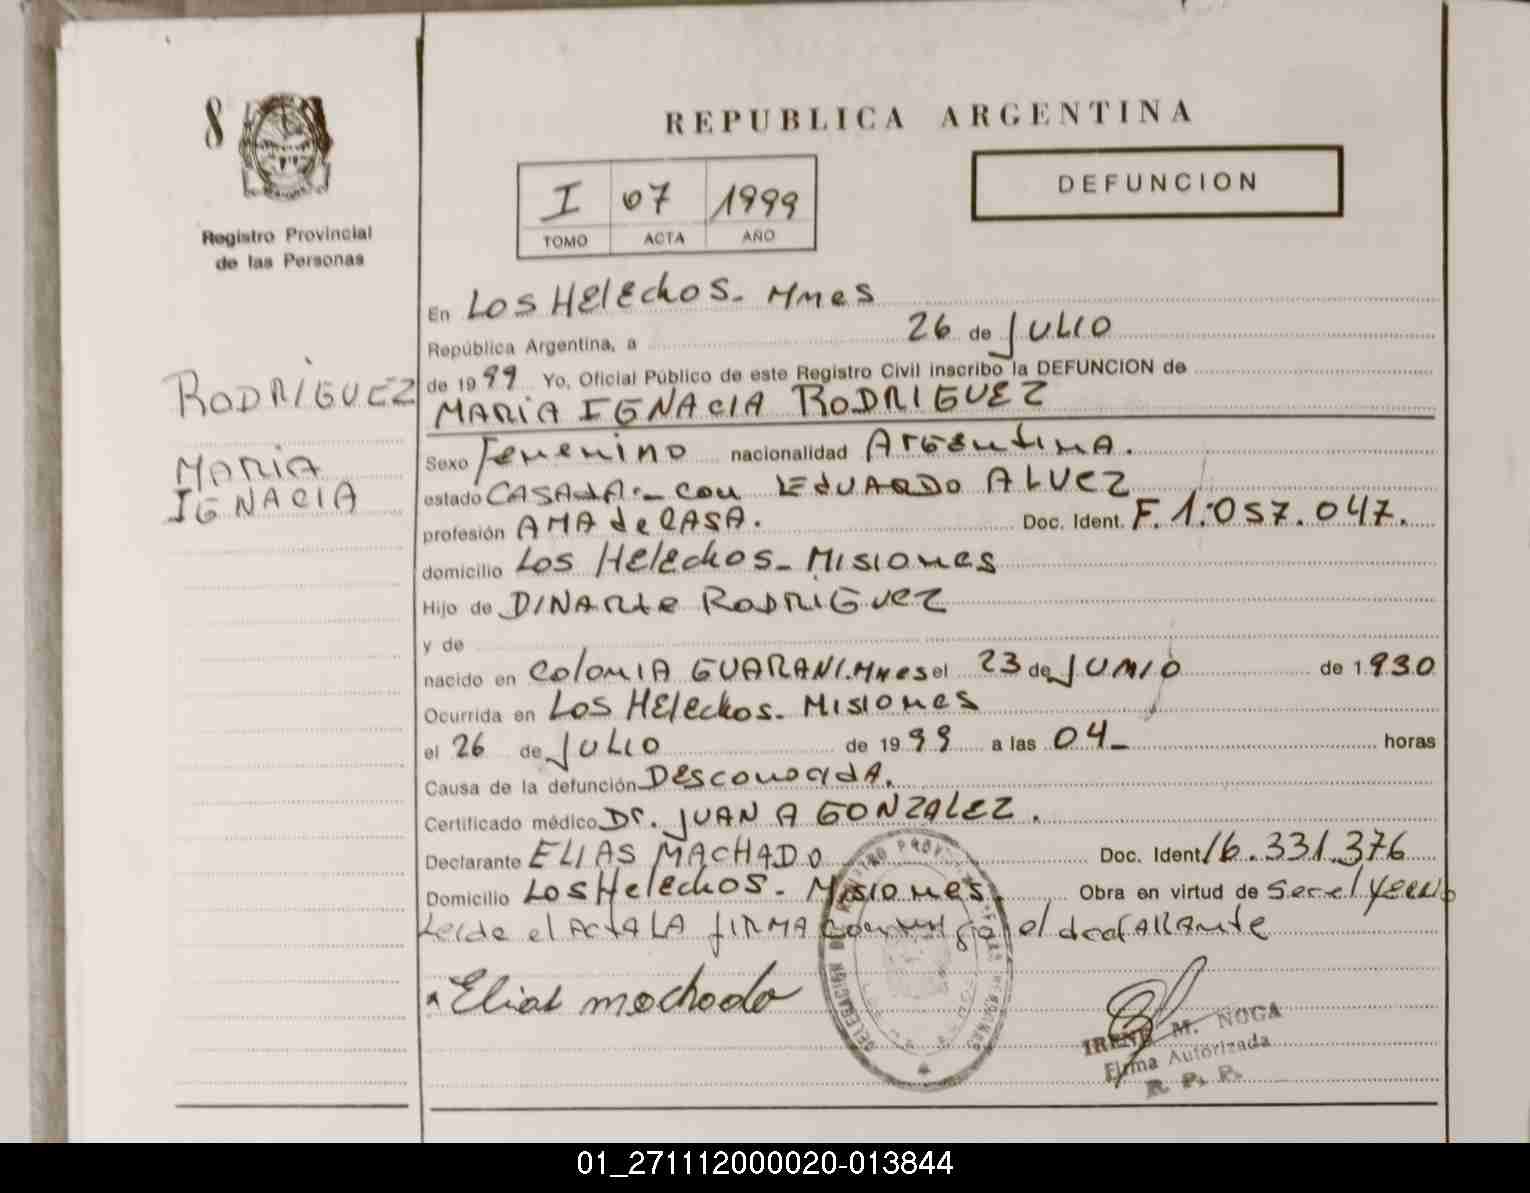 8
Registro Provincial
de las Personas
RODRIGUEZ
MARIA
IGNACIA
REPUBLICA ARGENTINA
I 07 1999
TOMO ACTA AÑO
DEFUNCION
En LOS HELECHOS - Mnes
República Argentina, a 26 de JULIO
de 1999 Yo, Oficial Público de este Registro Civil inscribo la DEFUNCION de
MARIA IGNACIA RODRIGUEZ
Sexo Femenino nacionalidad ARGENTINA.
estado CASADA.- con EDUARDO ALVEZ
profesión AMA de CASA. Doc. Ident. F. 1.057.047.
domicilio Los Helechos - Misiones
Hijo de DINARTE RODRIGUEZ
y de
nacido en Colonia GUARANI. Mnes el 23 de JUNIO de 1930
Ocurrida en Los Helechos - Misiones
el 26 de JULIO de 1999 a las 04- horas
Causa de la defunción Desconocida.
Certificado médico Dr. JUAN A GONZALEZ.
Declarante ELIAS MACHADO Doc. Ident 16.331.376
Domicilio Los Helechos - Misiones. Obra en virtud de Ser el
Leida el ACTA LA FIRMA el
Elias Machado
IRENE M. NOGA
Firma Autorizada
R. P. P.
01_271112000020-013844